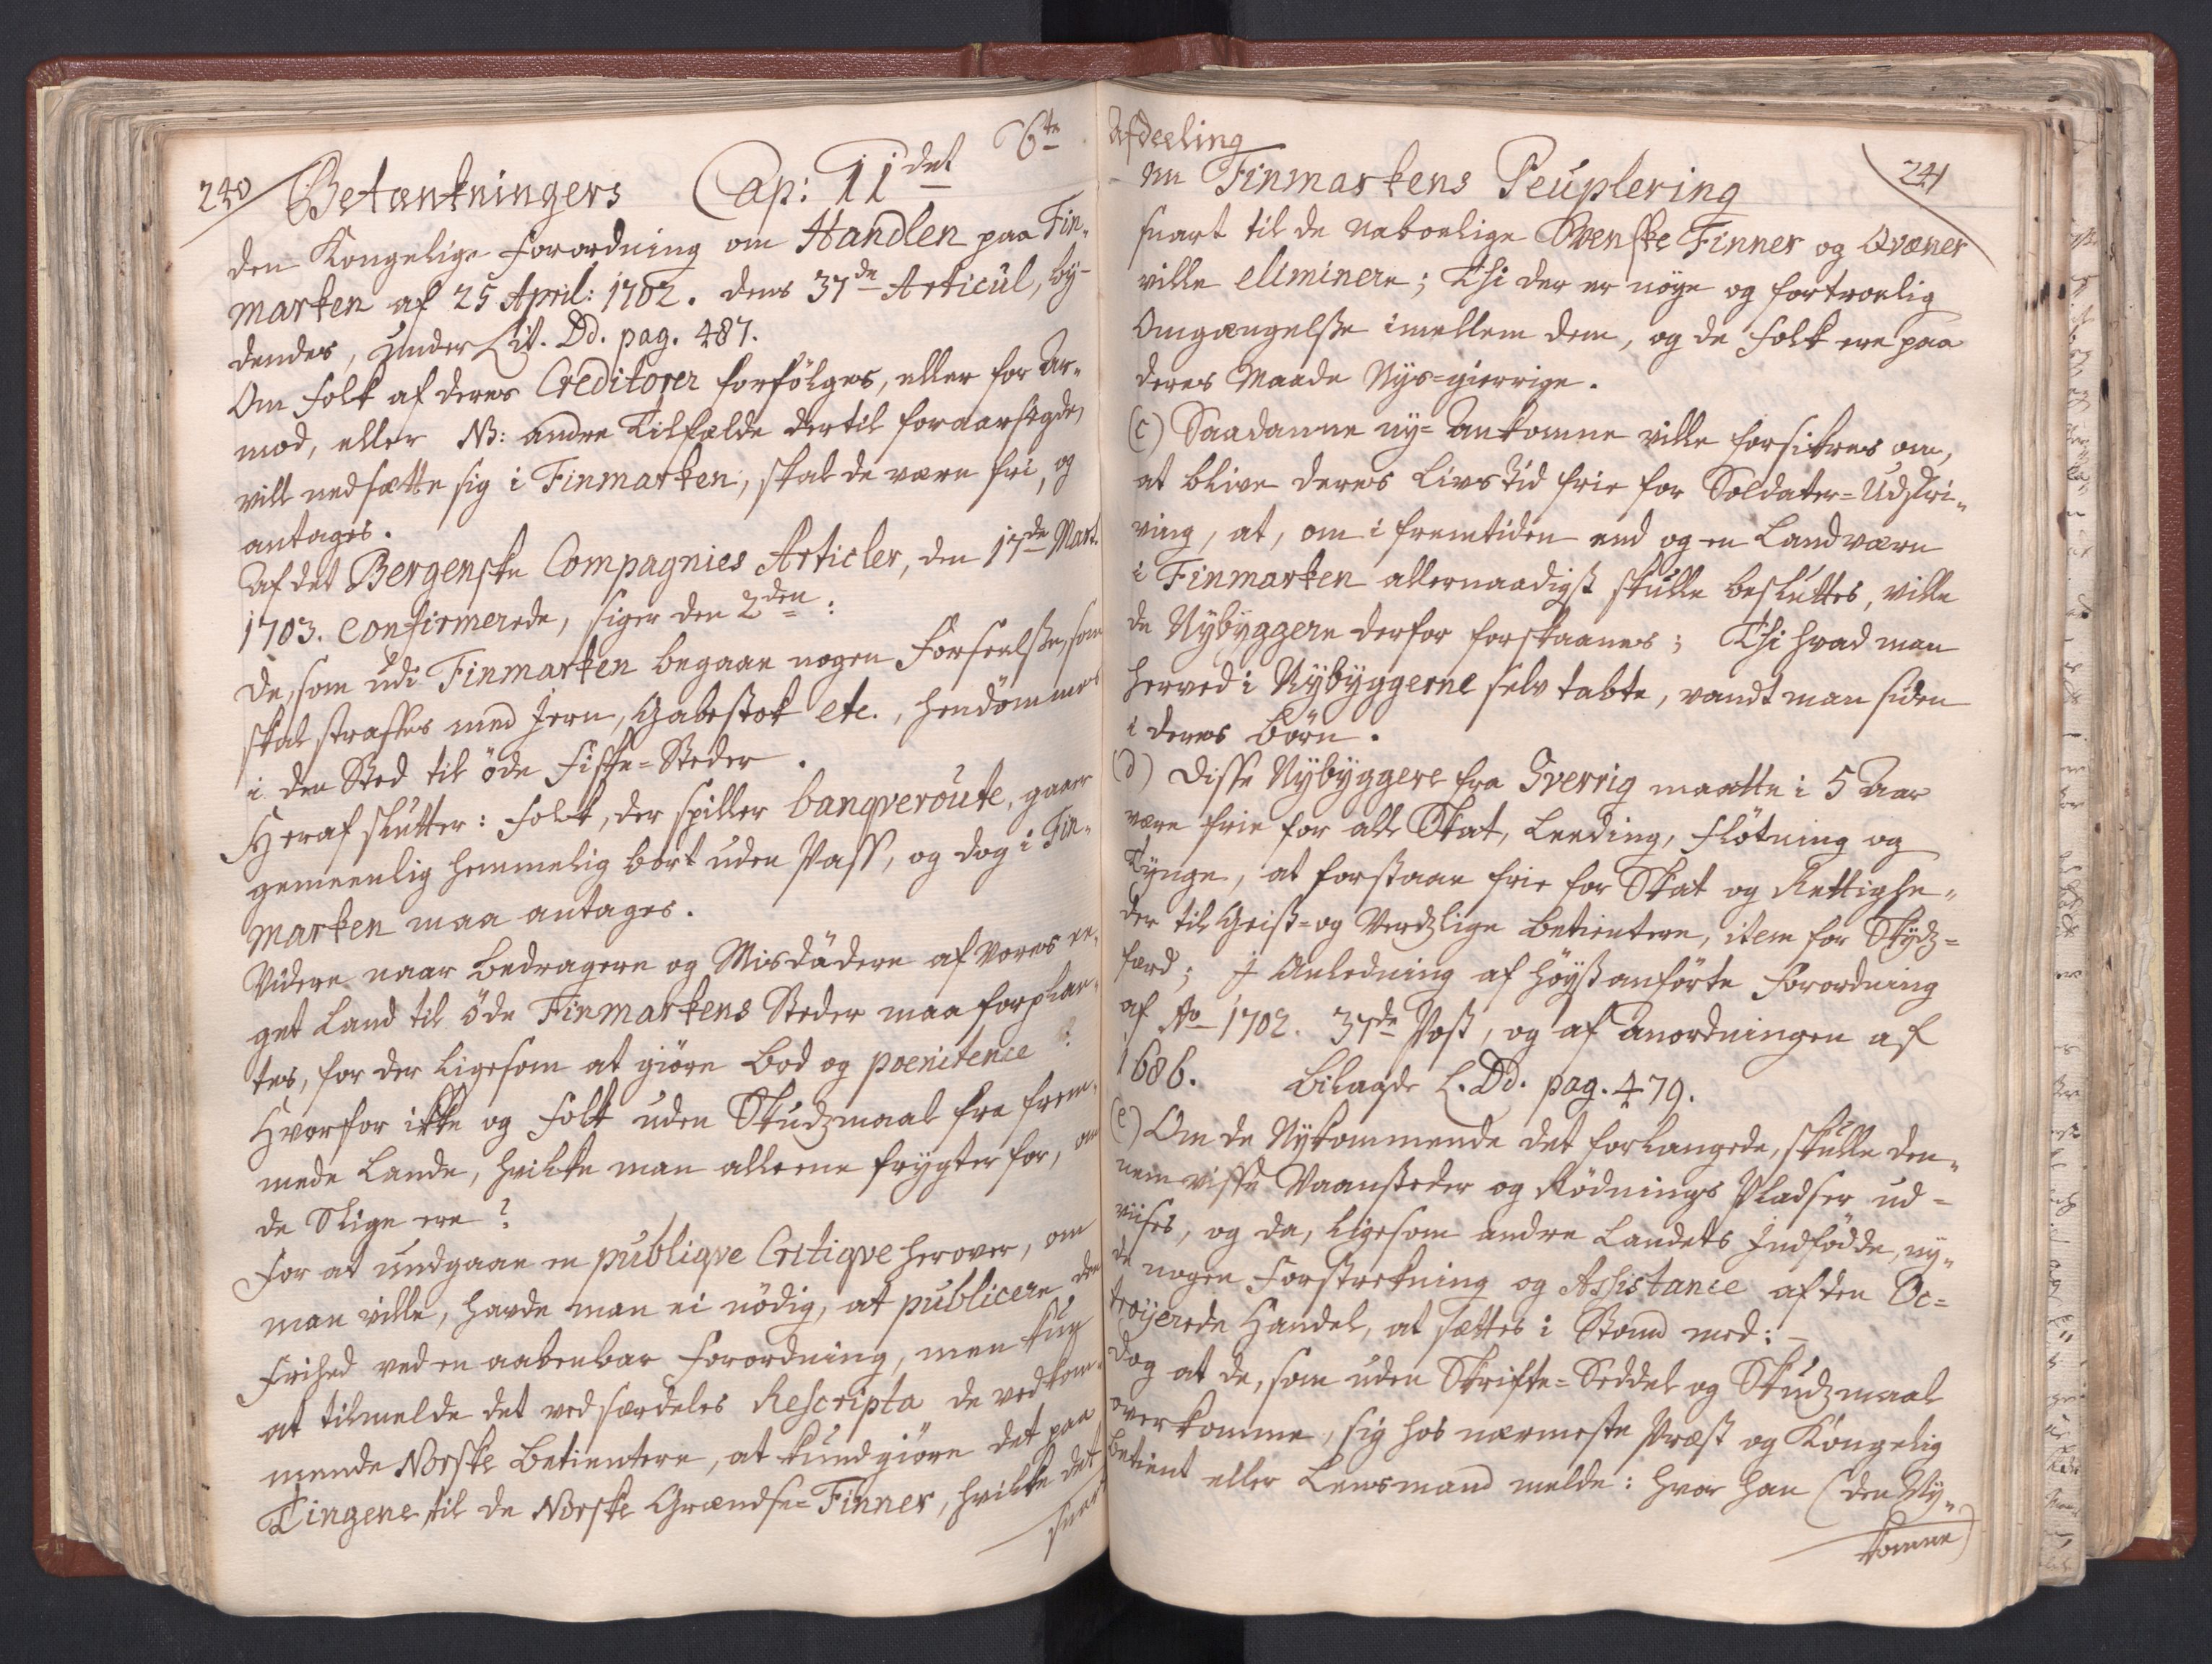 240
Betænkningers Cap: 11det 6te
den Kongelige Forordning om Handlen paa Fin„
marken af 25 April: 1702. dens 37de Articul, by-
dendes, under Lit. Dd. pag. 487.
Om Folk af deres Creditorer forfölges, eller for Ar„
mod, eller NB: andre Tilfælde dertil foraarsagde,
vill nedsætte sig i Finmarken, skal de være fri, og
antages.
Af det Bergenske Compagnies Articler, den 17de Mart.
1703. confirmerede, siger den 2den:
De, som udi Finmarken begaar nogen Forseelsse, som
skal straffes med Jern, Gabestok etc., hendömmes
i den Sted til öde Fiske=Steder.
Heraf slutter: Folk, der spiller banqveroute, gaaer
gemeenlig hemmelig bort uden Pass, og dog i Fin„
marken maa antages.
Videre naar Bedragere og Misdådere af vores ee„
get Land til öde Finmarkens Steder maa forplan„
tes, for der ligesom at giöre Bod og poenitence:
Hvorfor ikke og Folk uden Skudzmaal fra frem„
mede Lande, hvilke man alleene frygter for, om
de Slige ere?
For at undgaae en publiqve Critiqve herover, om
man ville, havde man ei nödig, at publicere den
Frihed ved en aabenbar Forordning, men kun
at tilmelde det ved særdeles Rescripta de vedkom„
mende Norske Betientere, at kundgiöre det paa
Tingene til de Norske Grændse=Finner, hvilke det
snart
Afdeeling
om Finmarkens Peuplering 241
snart til de naboelige Svenske Finner og Qvæner
ville eliminere; Thi der er nöye og fortroelig
Omgængelsse imellem dem, og de Folk ere paa
deres Maade Nys=gierrige.
(c) Saadanne ny=Ankomne ville forsikres om,
at blive deres Livs Tid frie for Soldater=Udskri„
ving, at, om i fremtiden end og en Landværn
i Finmarken allernaadigst skulle besluttes, ville
de Nybyggere derfor forskaanes; Thi hvad man
herved i Nybyggerne selv tabte, vandt man siden
i deres Börn.
(d) Disse Nybyggere fra Sverrig maatte i 5 Aar
være frie for all Skat, Leeding, Flötning og
Tynge, at forstaae frie for Skat og Rettighe„
der til Geist= og Verdzlige Betientere, item for Skydz=
færd; I Anledning af höystanförte Forordning
af Ao 1702. 37de Post, og af Anordningen af
1686. Bilagde L. Dd. pag. 479.
(e) Om de Nykommende det forlangede, skulle den„
nem visse Vaansteder og Rödnings Pladser ud=
viises, og da, ligesom andre Landets Indfödde, ny„
de nogen Forstrekning og Assistance af den Oc=
troyerede Handel, at sættes i Stand med: –
Dog at de, som uden Skrifte=Seddel og Skudzmaal
overkomme, sig hos nærmeste Præst og Kongelig
Betient eller Lensmand melde: hvor han (den Ny„
komne)